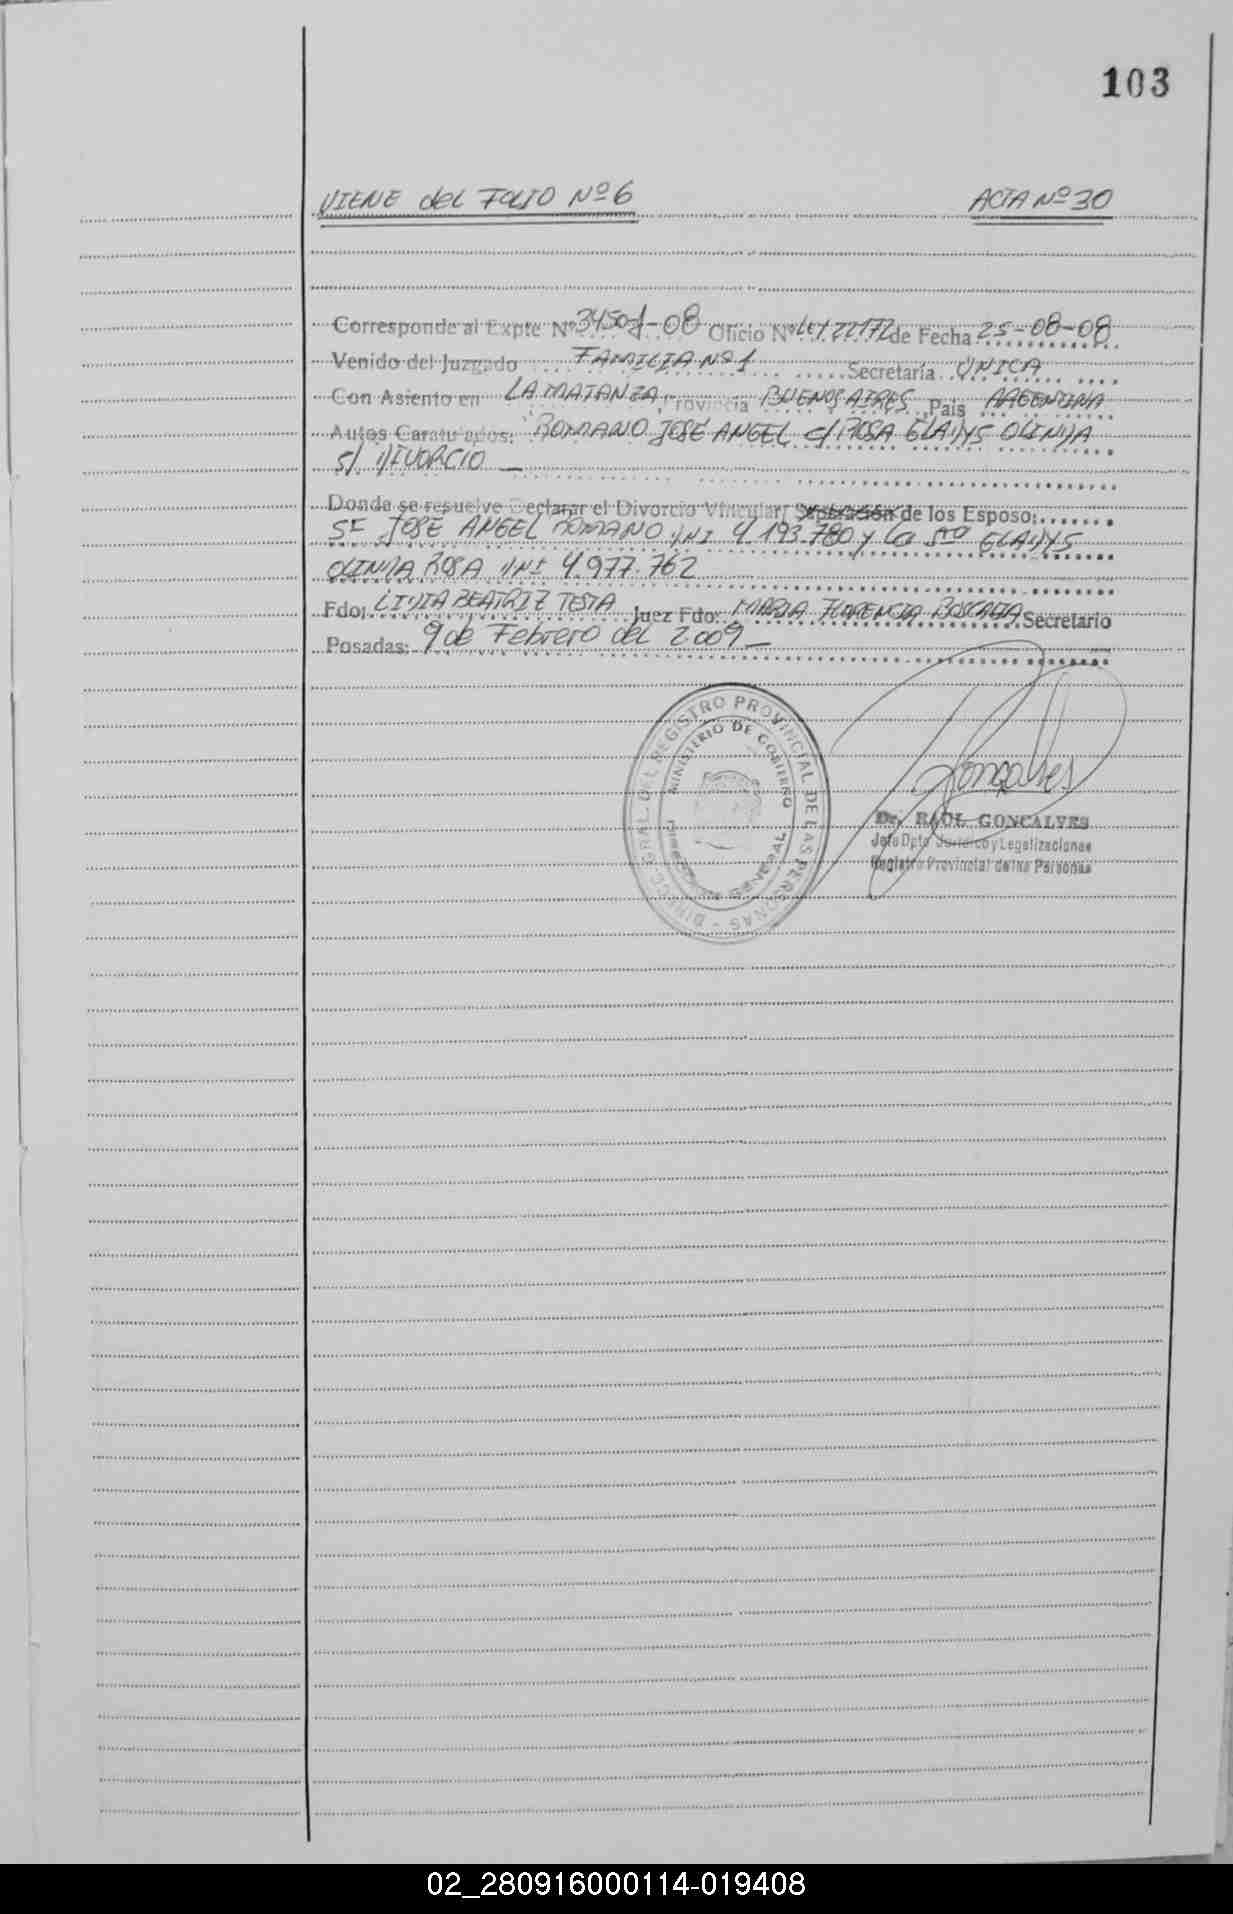 103
VIENE del FOLIO Nº 6 ACTA Nº 30
Corresponde al Expte Nº 34501-08 Oficio Nº Ley 22172 de Fecha 25-08-08
Venido del Juzgado FAMILIA Nº 1 Secretaría ÚNICA
Con Asiento en LA MATANZA, Provincia BUENOS AIRES, País ARGENTINA
Autos Caratulados: ROMANO JOSE ANGEL c/ ROSA GLADYS OLINDA
S/ DIVORCIO —
Donde se resuelve Declarar el Divorcio Vincular/ Separación de los Esposo:
Sr JOSE ANGEL ROMANO DNI 4.193.780 y La Sra GLADYS
OLINDA ROSA DNI 4.977.762
Fdo: LIDIA BEATRIZ TESTA Juez Fdo: MARIA FLORENCIA Secretario
Posadas: 9 de Febrero del 2009 —
DIRECC. GRAL. DEL REGISTRO PROVINCIAL DE LAS PERSONAS -
MINISTERIO DE GOBIERNO
GENERAL
Goncalves
Dr. RAUL GONCALVES
Jefe Dpto Jurídico y Legalizaciones
Registro Provincial de las Personas
02_280916000114-019408